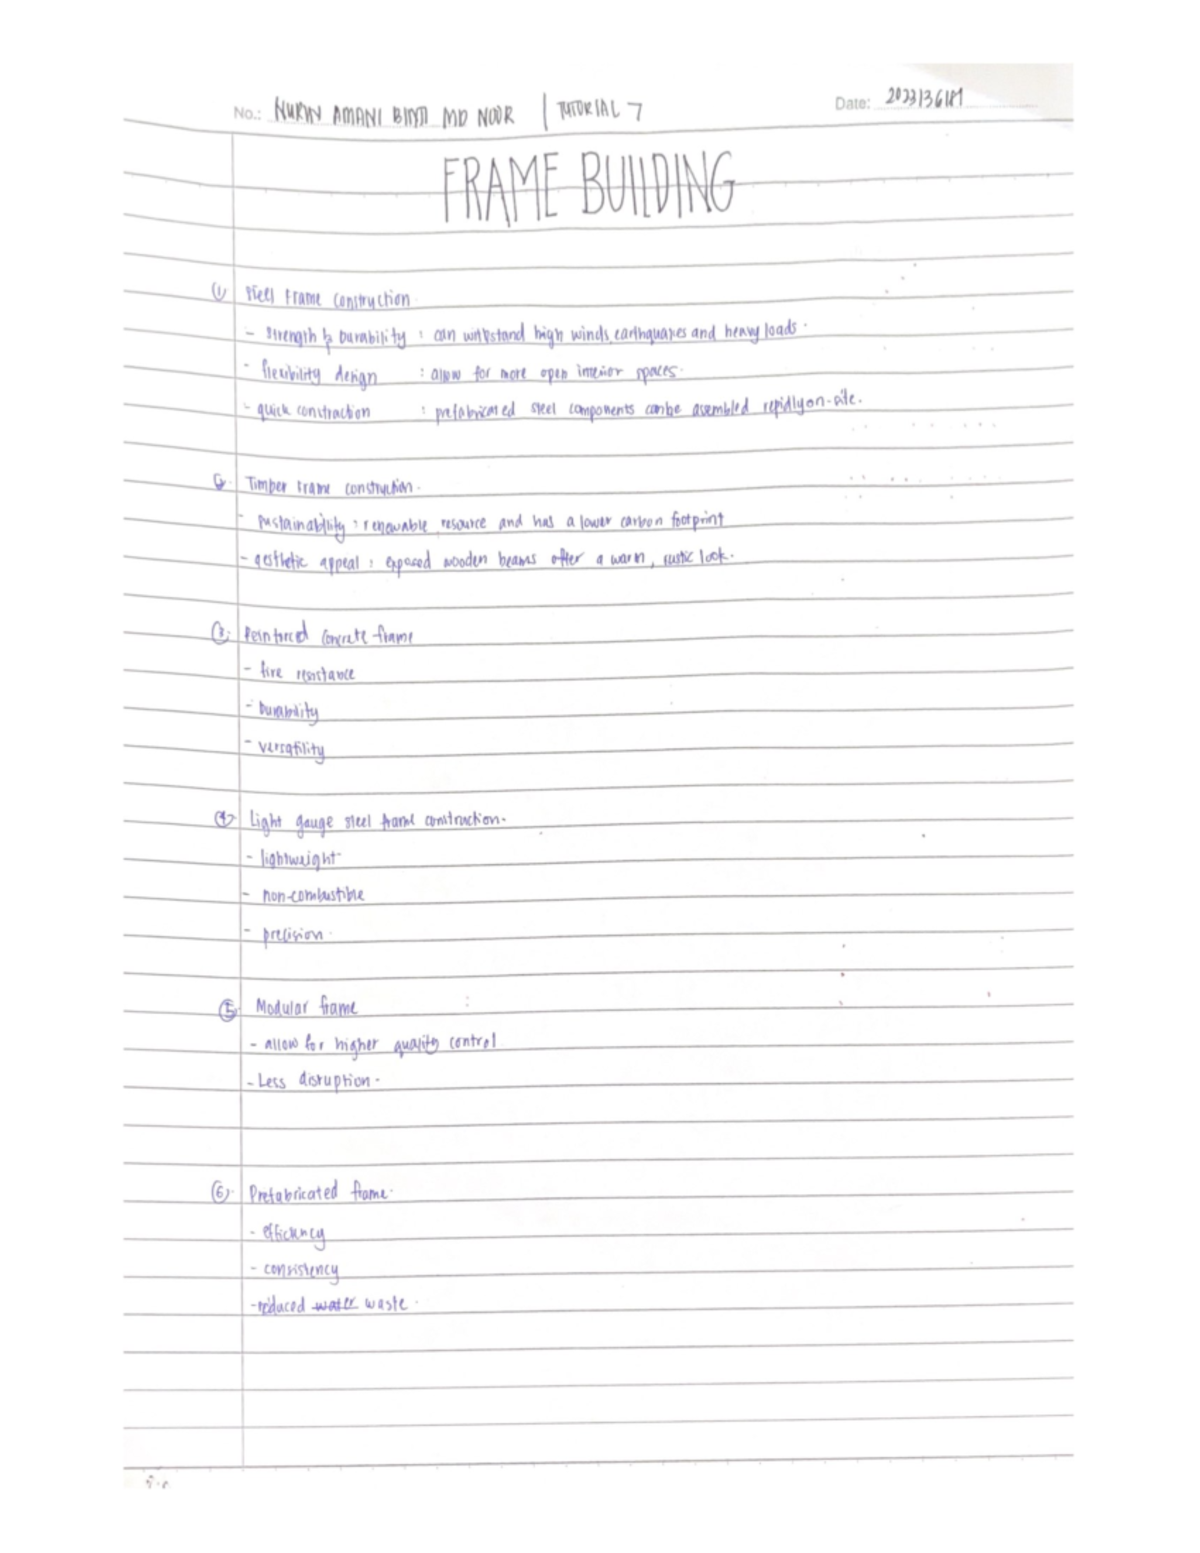 No.: NURIN AMANI BINTI MD NOOR | TUTORIAL 7 Date:
FRAME BUILDING
① Steel Frame construction
- strength & Durability : can withstand high winds, earthquakes and heavy loads.
- flexibility design : allow for more open interior spaces.
- quick construction : prefabricated steel components can be asembled rapidly on-site.
2. Timber Frame construction.
- sustainability : renewable resource and has a lower carbon footprint
- aesthetic appeal : exposed wooden beams offer a warm, rustic look.
③. Reinforced concrete frame
- fire resistance
- Durability
- versatility
④. Light gauge steel frame construction.
- lightweight
- non-combustible
- precision.
⑤. Modular frame :
- allow for higher quality control
- Less disruption.
⑥. Prefabricated frame.
- efficiency
- consistency
- reduced water waste.